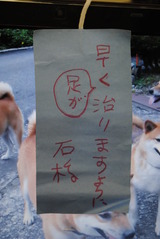 早く治りますように
足が
石橋